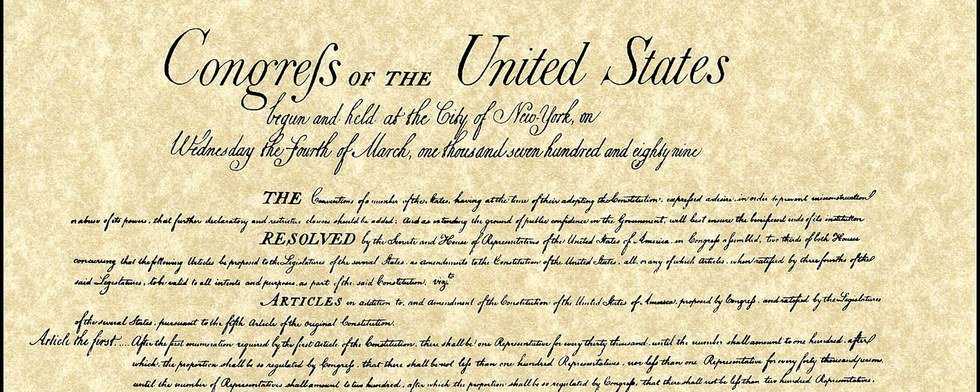 Congreſs OF THE United States
begun and held at the City of New-York, on
Wednesday the Fourth of March, one thousand seven hundred and eighty nine
THE Conventions of a number of the States, having at the time of their adopting the Constitution, expreſsed a desire, in order to prevent misconstruction
or abuse of its powers, that further declaratory and restrictive clauses should be added: And as extending the ground of public confidence in the Government, will best ensure the beneficent ends of its institution
RESOLVED by the Senate and House of Representatives of the United States of America, in Congreſs aſsembled, two thirds of both Houses
concurring, that the following Articles be proposed to the Legislatures of the several States, as amendments to the Constitution of the United States, all, or any of which Articles, when ratified by three fourths of the
said Legislatures, to be valid to all intents and purposes, as part of the said Constitution, vizt.
ARTICLES in addition to, and Amendment of the Constitution of the United States of America, proposed by Congreſs, and ratified by the Legislatures
of the several States, pursuant to the fifth Article of the original Constitution.
Article the first.... After the first enumeration required by the first Article of the Constitution, there shall be one Representative for every thirty thousand, until the number shall amount to one hundred, after
which, the proportion shall be so regulated by Congreſs, that there shall be not leſs than one hundred Representatives, nor leſs than one Representative for every forty thousand persons,
until the number of Representatives shall amount to two hundred, after which the proportion shall be so regulated by Congreſs, that there shall not be leſs than two hundred Representatives,